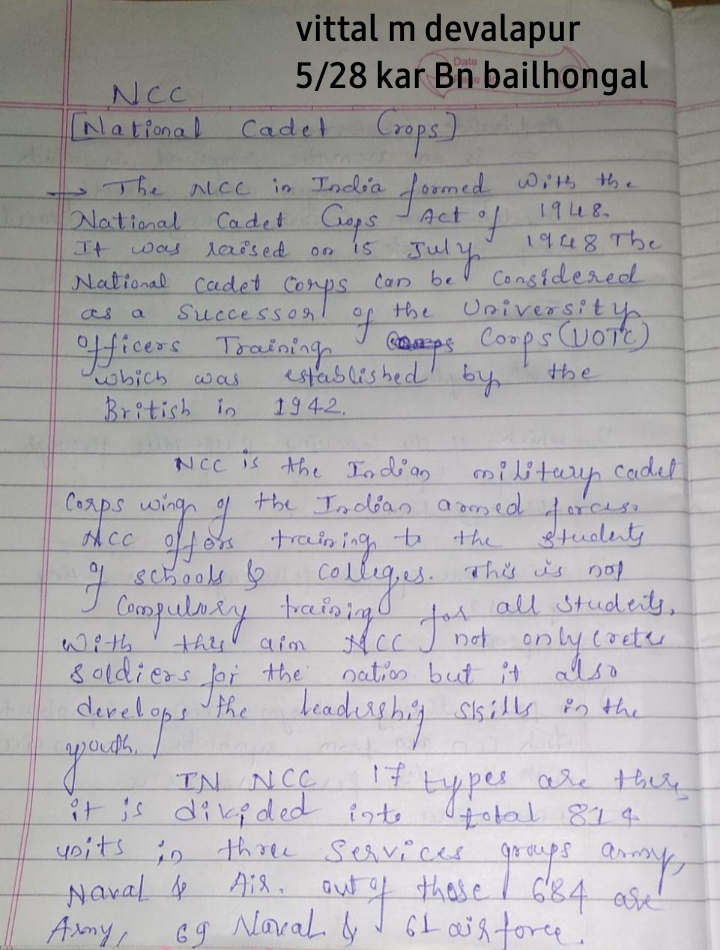 vittal m devalapur
Date
5/28 kar Bn bailhongal
NCC
[National Cadet Crops]
→ The NCC in India formed with the
National Cadet Crops Act of 1948.
It was raised on 15 July 1948 The
National cadet corps can be considered
as a Successor of the University
Officers Training Corps (UOTC)
which was established by the
British in 1942.
NCC is the Indian military cadet
Corps wing of the Indian armed forces.
NCC offers training to the students
of schools & colleges. This is not
Compulsory training for all students.
With this aim NCC not only crete
soldiers for the nation but it also
develops the leadership skills in the
youth.
IN NCC 17 types are there,
it is divided into total 814
units in three Services groups army,
Naval & Air. out of these 684 are
Army, 69 Naval & 61 air force.